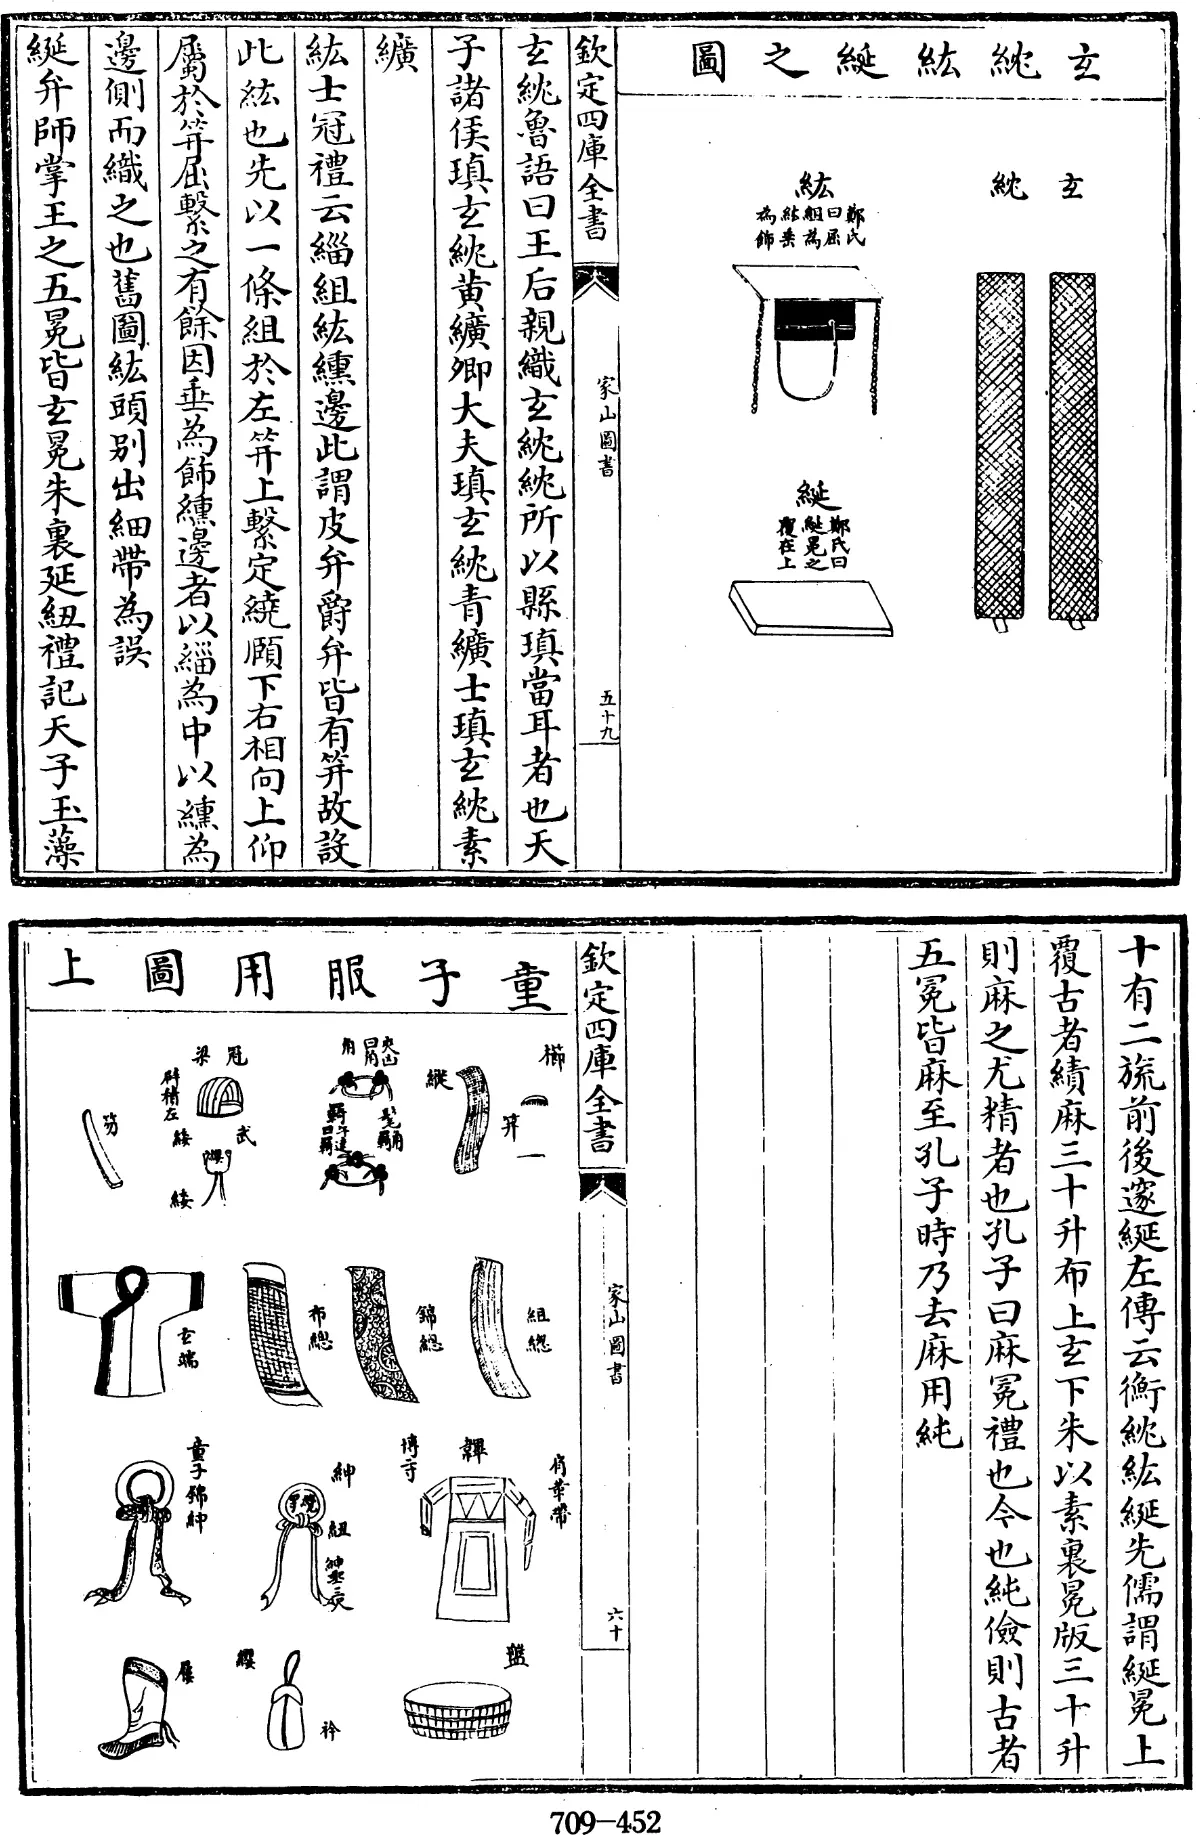 玄紞紘綖之圖
玄紞
紘
鄭氏
曰屈
組爲
結乗
為飾
綖
鄭氏曰
綖冕之
覆在上
欽定四庫全書
家山圖書
五十九
玄紞魯語曰王后親織玄紞紞所以縣瑱當耳者也天
子諸侯瑱玄紞黄纊卿大夫瑱玄紞青纊士瑱玄紞素
纊
紘士冠禮云緇組紘纁邊此謂皮弁爵弁皆有笄故設
此紘也先以一條組於左笄上繫定繞頤下右相向上仰
屬於笄屈繫之有餘因垂為飾纁邊者以緇為中以纁為
邊側而織之也舊圖紘頭别出細帶為誤
綖弁師掌王之五冕皆玄冕朱裏延紐禮記天子玉藻
十有二旒前後邃綖左傳云衡紞紘綖先儒謂綖冕上
覆古者績麻三十升布上玄下朱以素裏冕版三十升
則麻之尤精者也孔子曰麻冕禮也今也純儉則古者
五冕皆麻至孔子時乃去麻用純
欽定四庫全書
家山圖書
六十
童子服用圖上
櫛
笄
縰
夾囟
曰角
角
髦
冠
梁
辟積左
武
緌
緌
笏
組總
錦總
布總
玄端
肩革帶
韠
博二寸
紳
紐
紳垂三尺
童子錦紳
盤
纓
衿
屨
709-452